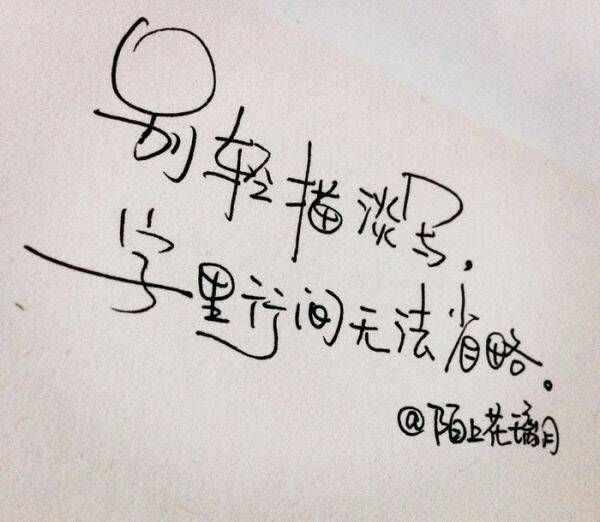 别轻描淡写,
字里行间无法省略。
@陌上花璃月